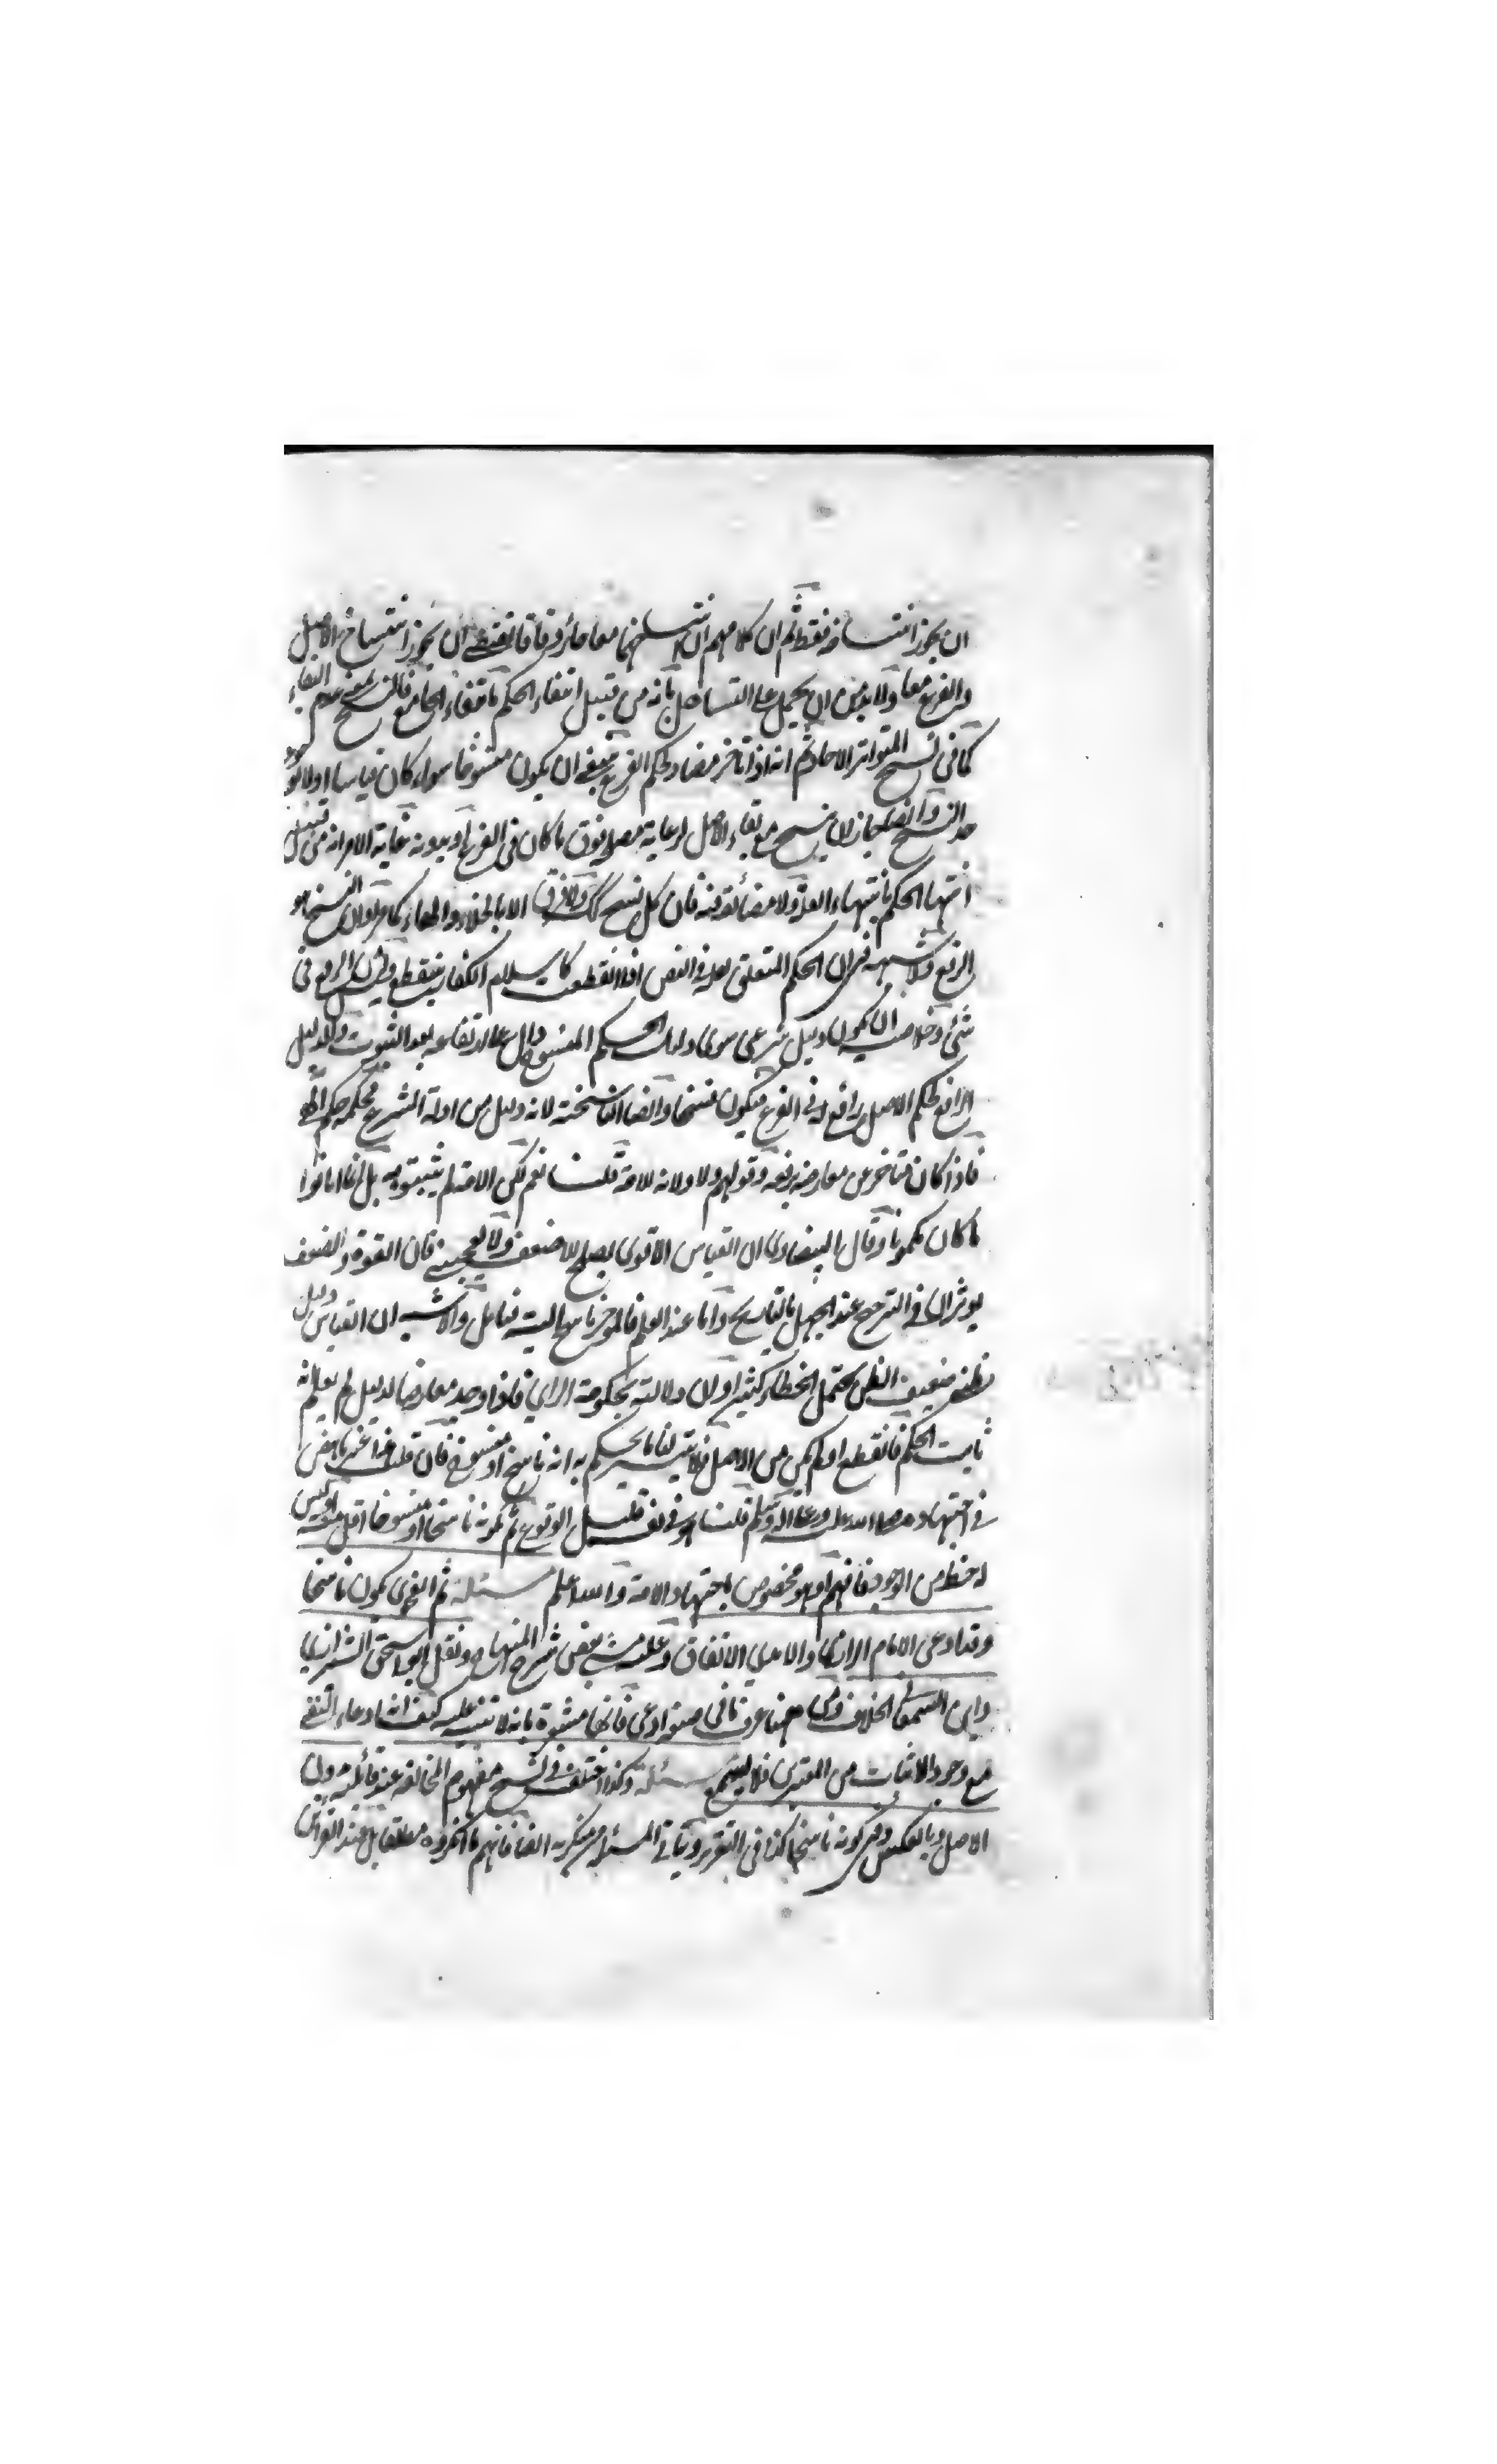 ان يجوز انتساخه فقط ثم ان كلامهم ان انتساخهما معا جائز وفاقا يقتضي ان يجوز انتساخ الاصل
والفرع معا ولا بد من ان يحمل على التساهل بانه من قبيل انتفاء الحكم بانتفاء الجامع فالنسخ بمعنى عدم البقاء
كما في نسخ المتواتر الاحاد ثم انه اذا تاخر مضاد لحكم الفرع فينبغي ان يكون منسوخا سواء كان قياسا او لا
حد النسخ وايضا جاز ان ينسخ مع بقاء الاصل لرعاية مصلحة فوق ما كان في الفرع او بدونه غاية الامر انه من قبيل
انتهاء الحكم بانتهاء العلة ولا مضائقة فيه فان كل نسخ كك ولا فرق الا بالجلاء والخفاء كما مر ولان النسخ هو
الرفع ولا شبهة في ان الحكم المتعلق بعلة في النص اذا انقطعت كاسلام الكفار ينقطع وليس الرفع في
شئ وخلاصته ان يكون دليل شرعي سوى دليل الحكم المنسوخ دال على ارتفاعه بعد الثبوت والدليل
الرافع لحكم الاصل رافع له في الفرع فيكون نسخا وايضا الناسخية لانه دليل من ادلة الشرع محكمه حكم الهي
فاذا كان متاخرا عن معارضه يرفعه وقولهم ولا ولاية للامة قلنا نعم لكن الامة لم يثبتوه به بل انما ابانوا
ما كان مكمونا وقال البيضاوي ان القياس الاقوى يصلح للاضعف ولا يعجبني فان القوة والضعف
يوثران في الترجيح عند الجهل بالتاريخ واما عند العلم فالموخر ناسخ البتة فتامل والاشبه ان القياس دليل
ظني ضعيف الظن يحتمل الخطاء كثيرا ولان دلالته بحكومة الراي فاذا وجد معارضا لدليل لم يعلم انه
ثابت الحكم فانقطع او لم يكن من الاصل فلا يتيسر لنا ما يحكم به انه ناسخ او منسوخ فان قلت هذا غير ناهض
في اجتهاده صلى الله عليه وعلى اله وسلم قلنا هو في نفسه قليل الوقوع ثم كونه ناسخا او منسوخا اقل منه او ليس
له حظ من الوجود فافهم او هو مخصوص باجتهاد الامة والله اعلم مسئلة ثم الفحوى يكون ناسخا
وقد ادعى الامام الرازي والامدي الاتفاق وعليه مشى بعض شراح المنهاج ونقل ابو اسحق الشيرازي
وابن السمعاني الخلاف ومن ههنا عرف ما في صيغة ادعى فانها مشعرة بانه لا بينة عليه كيف انه ادعاء النفي
مع وجود الاثبات من المعتبرين فلا يسمع مسئلة وكذا اختلف في نسخ مفهوم المخالفة عند قائليه دون
الاصل وبالعكس وفي كونه ناسخا كذا في التقرير وياتي المسئلة من منكريه ايضا فانهم ما انكروه مطلقا بل عند القرائن